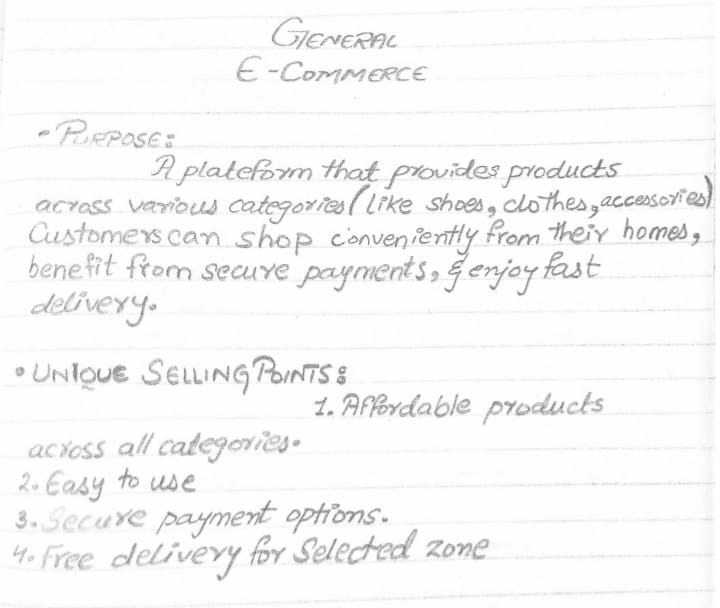 GENERAL
E-COMMERCE
- PURPOSE:
A plateform that provides products
across various categories (like shoes, clothes, accessories)
Customers can shop conveniently from their homes,
benefit from secure payments, & enjoy fast
delivery.
• UNIQUE SELLING POINTS:
1. Affordable products
across all categories.
2. Easy to use
3. Secure payment options.
4. Free delivery for Selected zone